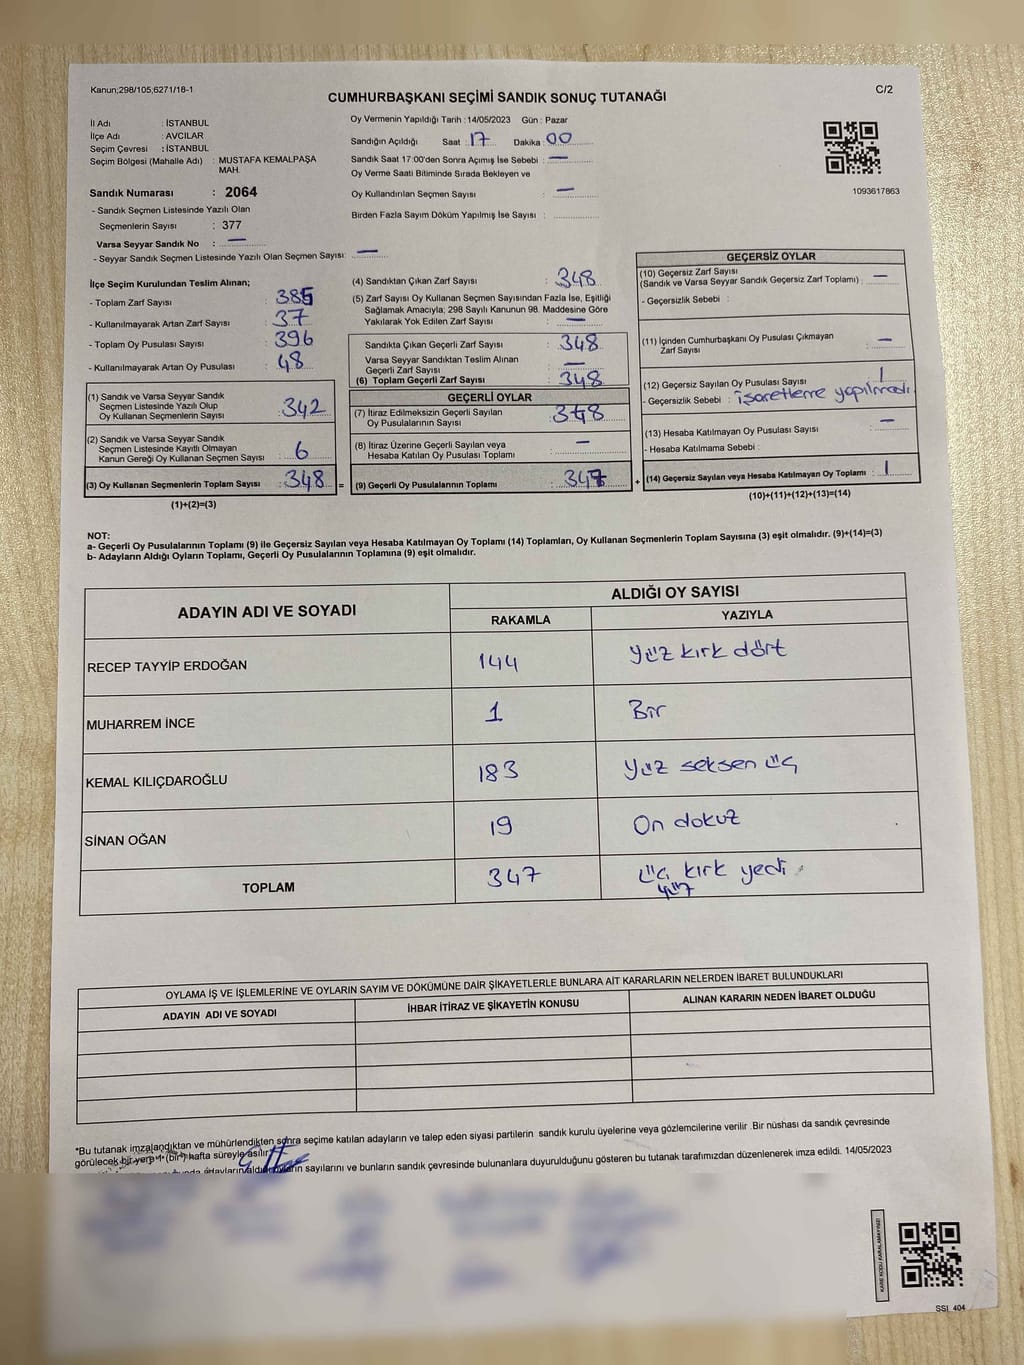 Kanun;298/105;6271/18-1
C/2
CUMHURBAŞKANI SEÇİMİ SANDIK SONUÇ TUTANAĞI
İl Adı : İSTANBUL
İlçe Adı : AVCILAR
Seçim Çevresi : İSTANBUL
Seçim Bölgesi (Mahalle Adı) : MUSTAFA KEMALPAŞA MAH.
Sandık Numarası : 2064
- Sandık Seçmen Listesinde Yazılı Olan
Seçmenlerin Sayısı : 377
Varsa Seyyar Sandık No : —
- Seyyar Sandık Seçmen Listesinde Yazılı Olan Seçmen Sayısı: —
Oy Vermenin Yapıldığı Tarih :14/05/2023 Gün : Pazar
Sandığın Açıldığı Saat : 17 Dakika : 00
Sandık Saat 17:00'den Sonra Açımış İse Sebebi : —
Oy Verme Saati Bitiminde Sırada Bekleyen ve
Oy Kullandırılan Seçmen Sayısı : —
Birden Fazla Sayım Döküm Yapılmış İse Sayısı :
1093617863
İlçe Seçim Kurulundan Teslim Alınan;
- Toplam Zarf Sayısı : 385
- Kullanılmayarak Artan Zarf Sayısı : 37
- Toplam Oy Pusulası Sayısı : 396
- Kullanılmayarak Artan Oy Pusulası : 48
(1) Sandık ve Varsa Seyyar Sandık
Seçmen Listesinde Yazılı Olup
Oy Kullanan Seçmenlerin Sayısı : 342
(2) Sandık ve Varsa Seyyar Sandık
Seçmen Listesinde Kayıtlı Olmayan
Kanun Gereği Oy Kullanan Seçmen Sayısı : 6
(3) Oy Kullanan Seçmenlerin Toplam Sayısı : 348 =
(1)+(2)=(3)
(4) Sandıktan Çıkan Zarf Sayısı : 348
(5) Zarf Sayısı Oy Kullanan Seçmen Sayısından Fazla İse, Eşitliği
Sağlamak Amacıyla; 298 Sayılı Kanunun 98. Maddesine Göre
Yakılarak Yok Edilen Zarf Sayısı : —
Sandıkta Çıkan Geçerli Zarf Sayısı : 348
Varsa Seyyar Sandıktan Teslim Alınan
Geçerli Zarf Sayısı : —
(6) Toplam Geçerli Zarf Sayısı : 348
GEÇERLİ OYLAR
(7) İtiraz Edilmeksizin Geçerli Sayılan
Oy Pusulalarının Sayısı : 348
(8) İtiraz Üzerine Geçerli Sayılan veya
Hesaba Katılan Oy Pusulası Toplamı : —
(9) Geçerli Oy Pusulalarının Toplamı : 347 +
GEÇERSİZ OYLAR
(10) Geçersiz Zarf Sayısı
(Sandık ve Varsa Seyyar Sandık Geçersiz Zarf Toplamı) : —
- Geçersizlik Sebebi :
(11) İçinden Cumhurbaşkanı Oy Pusulası Çıkmayan
Zarf Sayısı : —
(12) Geçersiz Sayılan Oy Pusulası Sayısı : 1
- Geçersizlik Sebebi : işaretleme yapılmadı
(13) Hesaba Katılmayan Oy Pusulası Sayısı : —
- Hesaba Katılmama Sebebi :
(14) Geçersiz Sayılan veya Hesaba Katılmayan Oy Toplamı : 1
(10)+(11)+(12)+(13)=(14)
NOT:
a- Geçerli Oy Pusulalarının Toplamı (9) ile Geçersiz Sayılan veya Hesaba Katılmayan Oy Toplamı (14) Toplamları, Oy Kullanan Seçmenlerin Toplam Sayısına (3) eşit olmalıdır. (9)+(14)=(3)
b- Adayların Aldığı Oyların Toplamı, Geçerli Oy Pusulalarının Toplamına (9) eşit olmalıdır.
ADAYIN ADI VE SOYADI
ALDIĞI OY SAYISI
RAKAMLA YAZIYLA
RECEP TAYYİP ERDOĞAN 144 yüz kırk dört
MUHARREM İNCE 1 Bir
KEMAL KILIÇDAROĞLU 183 yüz seksen üç
SİNAN OĞAN 19 On dokuz
TOPLAM 347 üç yüz kırk yedi
OYLAMA İŞ VE İŞLEMLERİNE VE OYLARIN SAYIM VE DÖKÜMÜNE DAİR ŞİKAYETLERLE BUNLARA AİT KARARLARIN NELERDEN İBARET BULUNDUKLARI
ADAYIN ADI VE SOYADI İHBAR İTİRAZ VE ŞİKAYETİN KONUSU ALINAN KARARIN NEDEN İBARET OLDUĞU
*Bu tutanak imzalandıktan ve mühürlendikten sonra seçime katılan adayların ve talep eden siyasi partilerin sandık kurulu üyelerine veya gözlemcilerine verilir .Bir nüshası da sandık çevresinde
görülecek bir yere (bir) hafta süreyle asılır.
sayılarını ve bunların sandık çevresinde bulunanlara duyurulduğunu gösteren bu tutanak tarafımızdan düzenlenerek imza edildi. 14/05/2023
KARE KODU KARALAMAYINIZ!
SSI_404